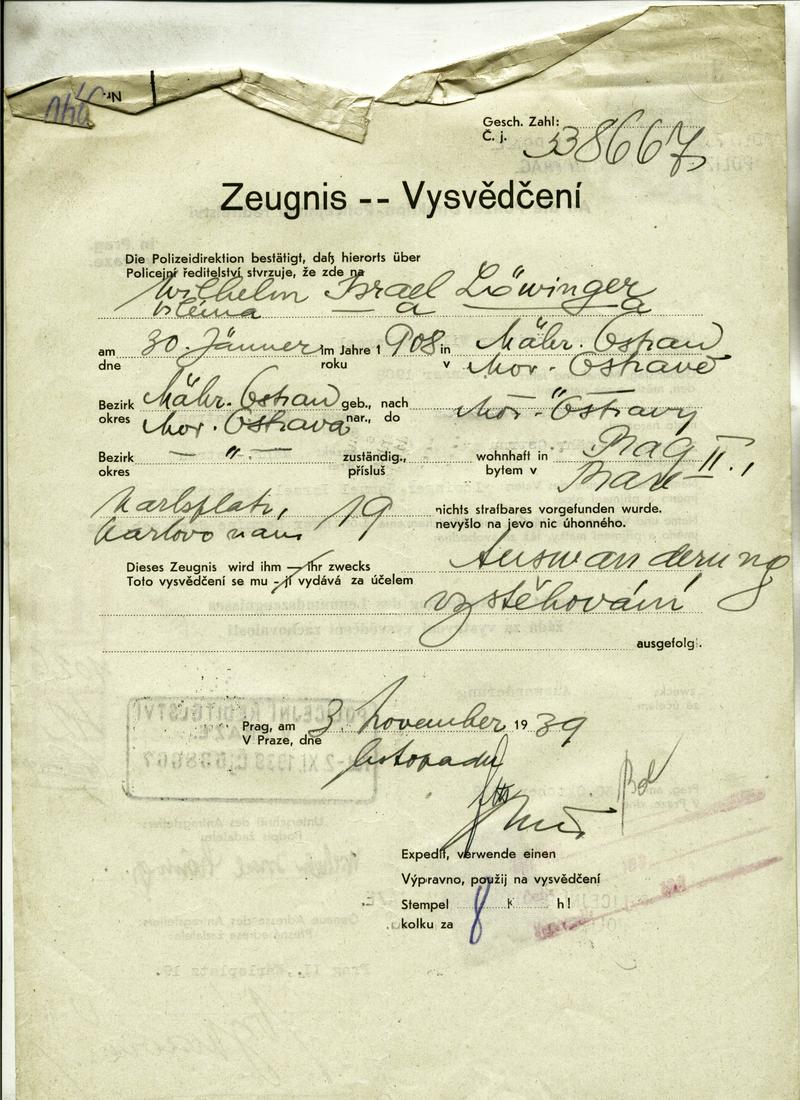 Nr.
Gesch. Zahl:
Č. j. 38667
Zeugnis -- Vysvědčení
Die Polizeidirektion bestätigt, daß hierorts über
Policejní ředitelství stvrzuje, že zde na
Wilhelm Israel Löwinger
Viléma — a — a
am 30. Jänner im Jahre 1908 in Mähr. Ostrau
dne roku v Mor. Ostravě
Bezirk Mähr. Ostrau geb., nach — " —
okres Mor. Ostrava nar., do Mor. Ostravy
Bezirk — " — zuständig., wohnhaft in Prag II.,
okres přísluš bytem v Praze —
Karlsplatz, 19 nichts strafbares vorgefunden wurde.
Karlovo nám. nevyšlo na jevo nic úhonného.
Dieses Zeugnis wird ihm — ihr zwecks Auswanderung
Toto vysvědčení se mu - jí vydává za účelem
vystěhování
ausgefolgt.
Prag, am 3. November 1939
V Praze, dne listopadu
Expedit, verwende einen
Výpravno, použij na vysvědčení
Stempel 8 K h!
kolku za